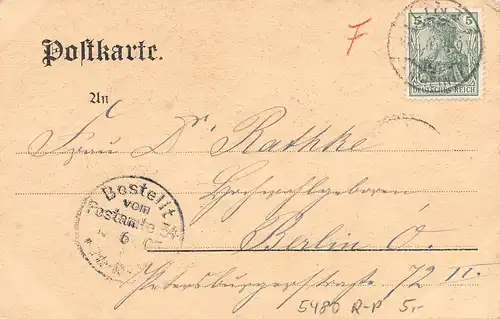 F
5 5
DEUTSCHES REICH
Postkarte.
An
Frau Dr Rathke
Hochwohlgeboren
Bestellt
vom
Postamte
6
Berlin O.
Petersburgerstrasse 72 II.
5480 R-P 5,-